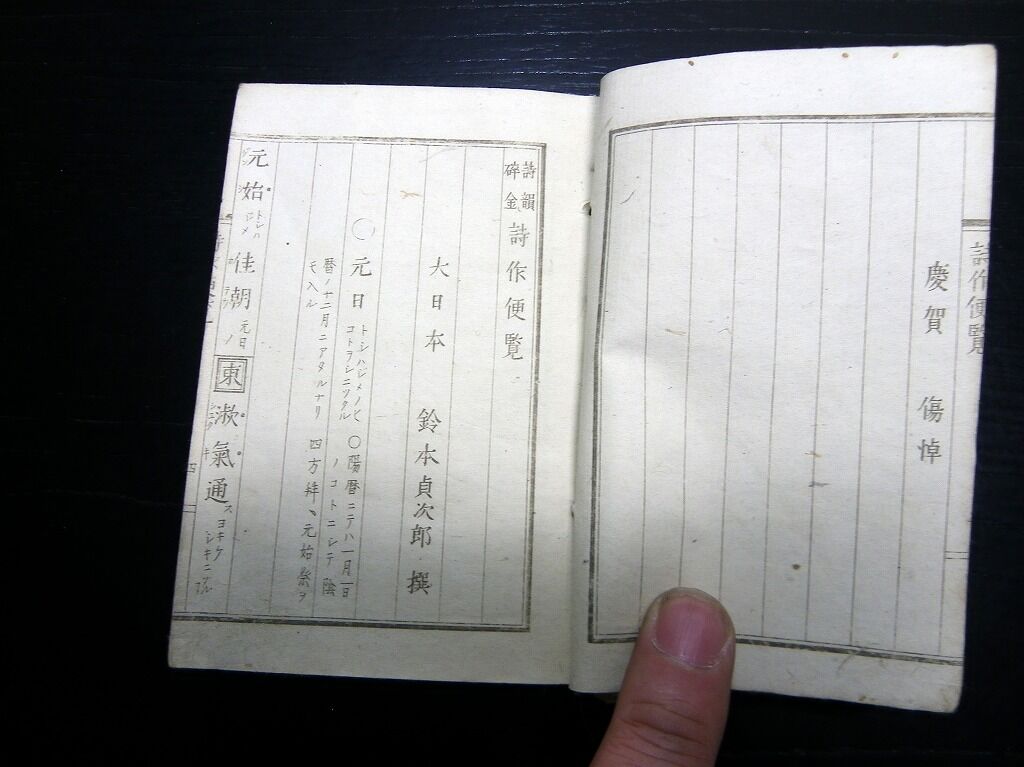 詩作便覧
慶賀 傷悼
詩韻碎金 詩作便覧
大日本 鈴木貞次郎 撰
○元日 トシハジメノヒ ○陽暦ニテハ一月一日
ノコトニシテ陰
暦ノ十二月ニアタルナリ 四方拜、元始祭ヲ
モ入ル
元始 トシハジメ 佳朝 元日ノ 東 漱氣通
四